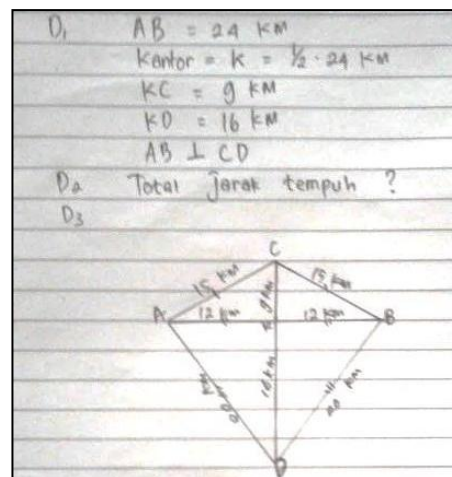 D₁ AB = 24 KM
Kantor = K = ½ · 24 KM
KC = 9 KM
KD = 16 KM
AB ⊥ CD
D₂ Total jarak tempuh ?
D₃
C
15 KM 9 KM 15 KM
A 12 KM K 12 KM B
20 KM 16 KM 20 KM
D